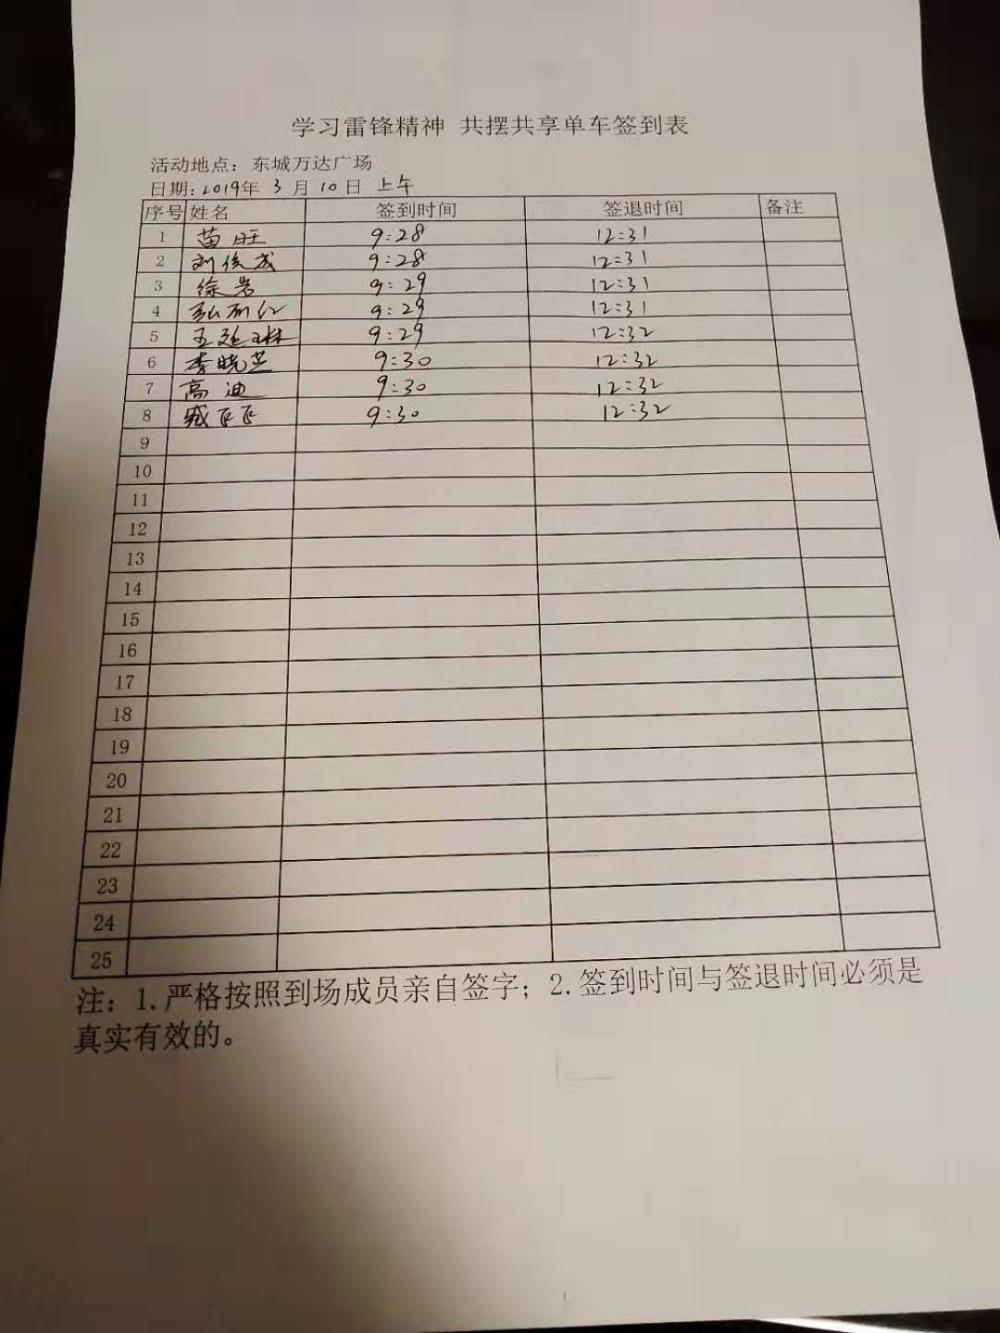 学习雷锋精神 共摆共享单车签到表
活动地点：东城万达广场
日期:2019年 3 月 10 日 上午
序号 姓名 签到时间 签退时间 备注
1 苗旺 9:28 12:31
2 刘俊成 9:28 12:31
3 徐岩 9:29 12:31
4 9:29 12:31
5 王延琳 9:29 12:32
6 李晓芝 9:30 12:32
7 高迪 9:30 12:32
8 臧飞飞 9:30 12:32
9
10
11
12
13
14
15
16
17
18
19
20
21
22
23
24
25
注：1.严格按照到场成员亲自签字；2.签到时间与签退时间必须是
真实有效的。